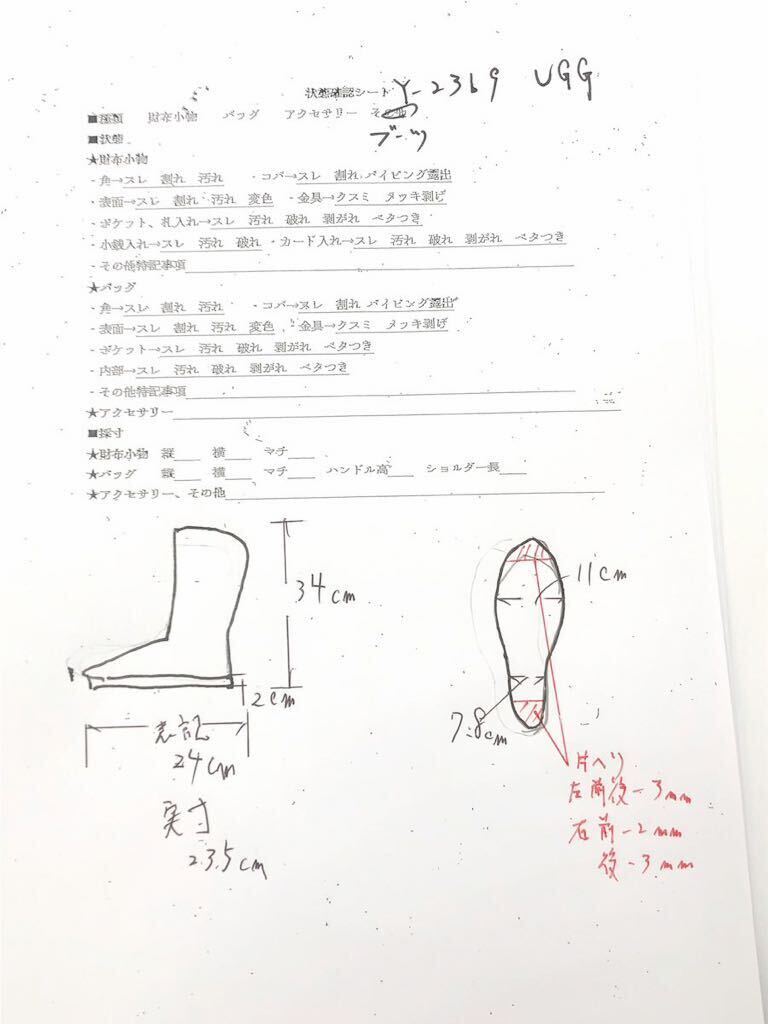 状態確認シート Y-2369 UGG
■種類 財布小物 バッグ アクセサリー その他
ブーツ
■状態
★財布小物
・角→スレ 割れ 汚れ ・コバ→スレ 割れ パイピング露出
・表面→スレ 割れ 汚れ 変色 ・金具→クスミ メッキ剥げ
・ポケット、札入れ→スレ 汚れ 破れ 剥がれ ベタつき
・小銭入れ→スレ 汚れ 破れ ・カード入れ→スレ 汚れ 破れ 剥がれ ベタつき
・その他特記事項
★バッグ
・角→スレ 割れ 汚れ ・コバ→スレ 割れ パイピング露出
・表面→スレ 割れ 汚れ 変色 ・金具→クスミ メッキ剥げ
・ポケット→スレ 汚れ 破れ 剥がれ ベタつき
・内部→スレ 汚れ 破れ 剥がれ ベタつき
・その他特記事項
★アクセサリー
■採寸
★財布小物 縦 横 マチ
★バッグ 縦 横 マチ ハンドル高 ショルダー長
★アクセサリー、その他
34cm
2cm
表記
24cm
実寸
23.5cm
11cm
7.8cm
片へり
左前後-3mm
右前-2mm
後-3mm